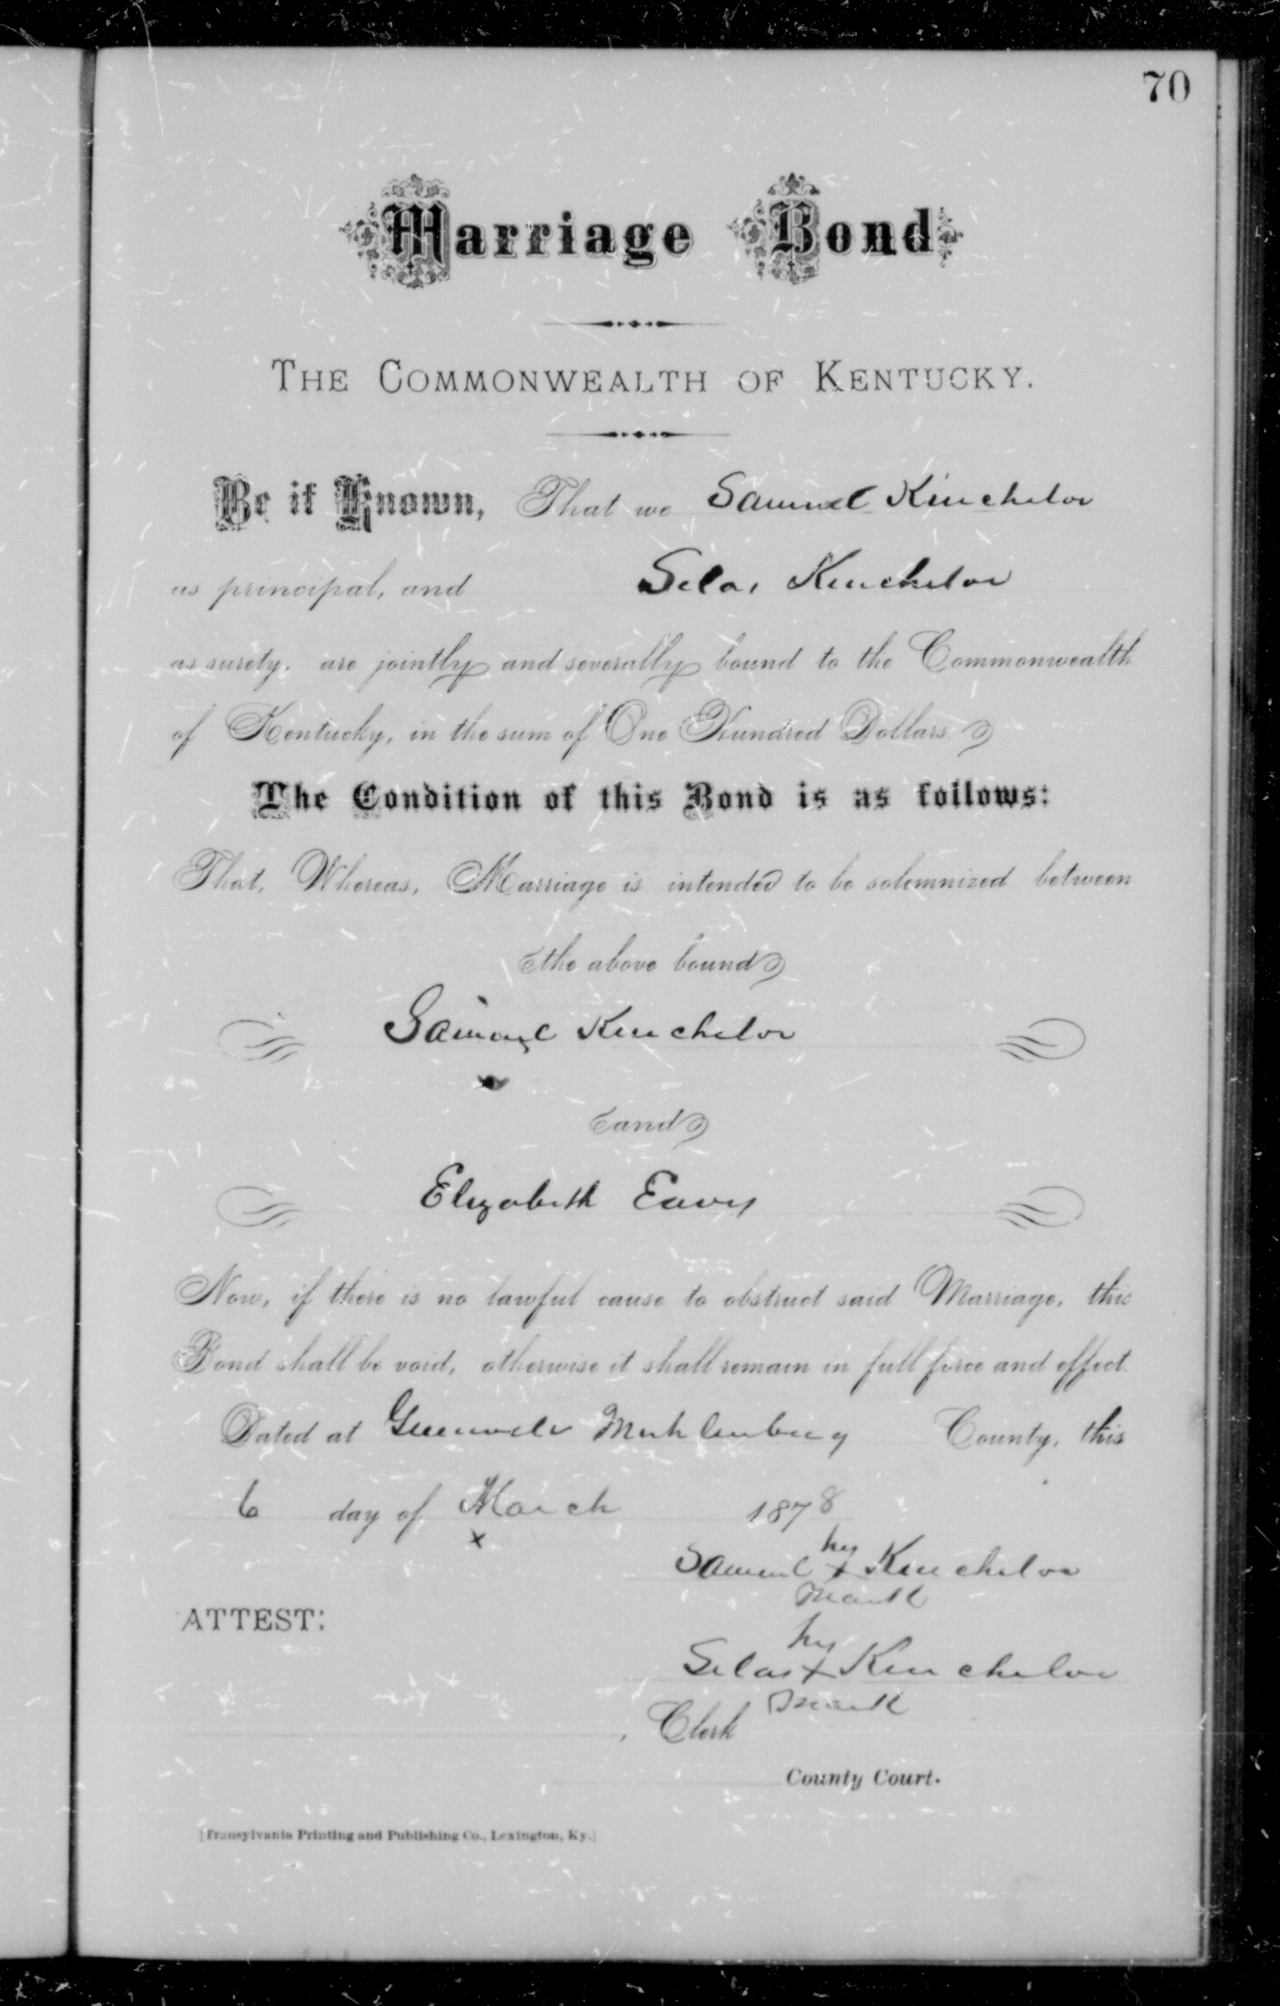 70
Marriage Bond
THE COMMONWEALTH OF KENTUCKY.
Be it Known, That we Samuel Kincheloe
as principal, and Selas Kincheloe
as surety, are jointly and severally bound to the Commonwealth
of Kentucky, in the sum of One Hundred Dollars.
The Condition of this Bond is as follows:
That, Whereas, Marriage is intended to be solemnized between
the above bound
Samuel Kincheloe
and
Elizabeth Eaves
Now, if there is no lawful cause to obstruct said Marriage, this
Bond shall be void, otherwise it shall remain in full force and effect.
Dated at Greenville Muhlenburg County, this
6 day of March 1878
x
his
Samuel x Kincheloe
mark
ATTEST:
his
Selas x Kincheloe
mark
, Clerk
County Court.
[Transylvania Printing and Publishing Co., Lexington, Ky.]